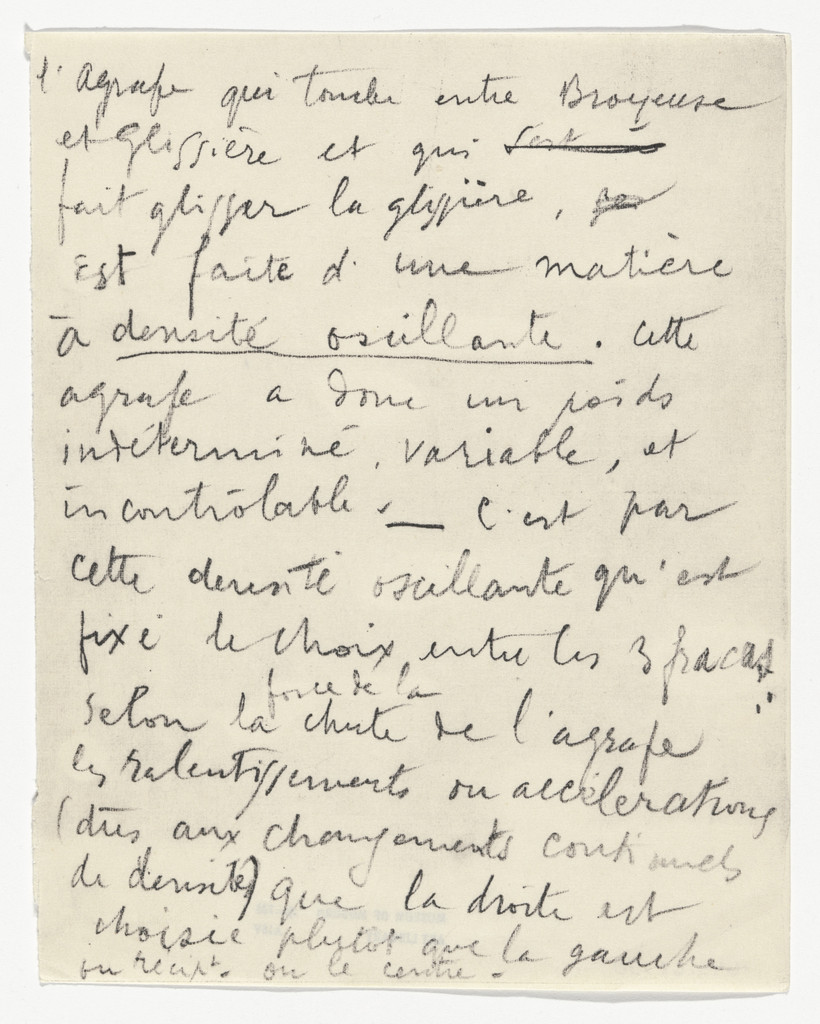 l'agrafe qui tombe entre Broyeuse
et Glissière et qui
fait glisser la glissière,
Est faite d'une matière
à densité oscillante. Cette
agrafe a donc un poids
indéterminé, variable, et
incontrôlable. — C'est par
cette densité oscillante qu'est
fixé le choix entre les 3 fracas
force de la
Selon la chute de l'agrafe
les ralentissements ou accélérations
(dus aux changements continuels
de densité) que la droite est
choisie plutôt que la gauche
ou récipt. ou le centre.